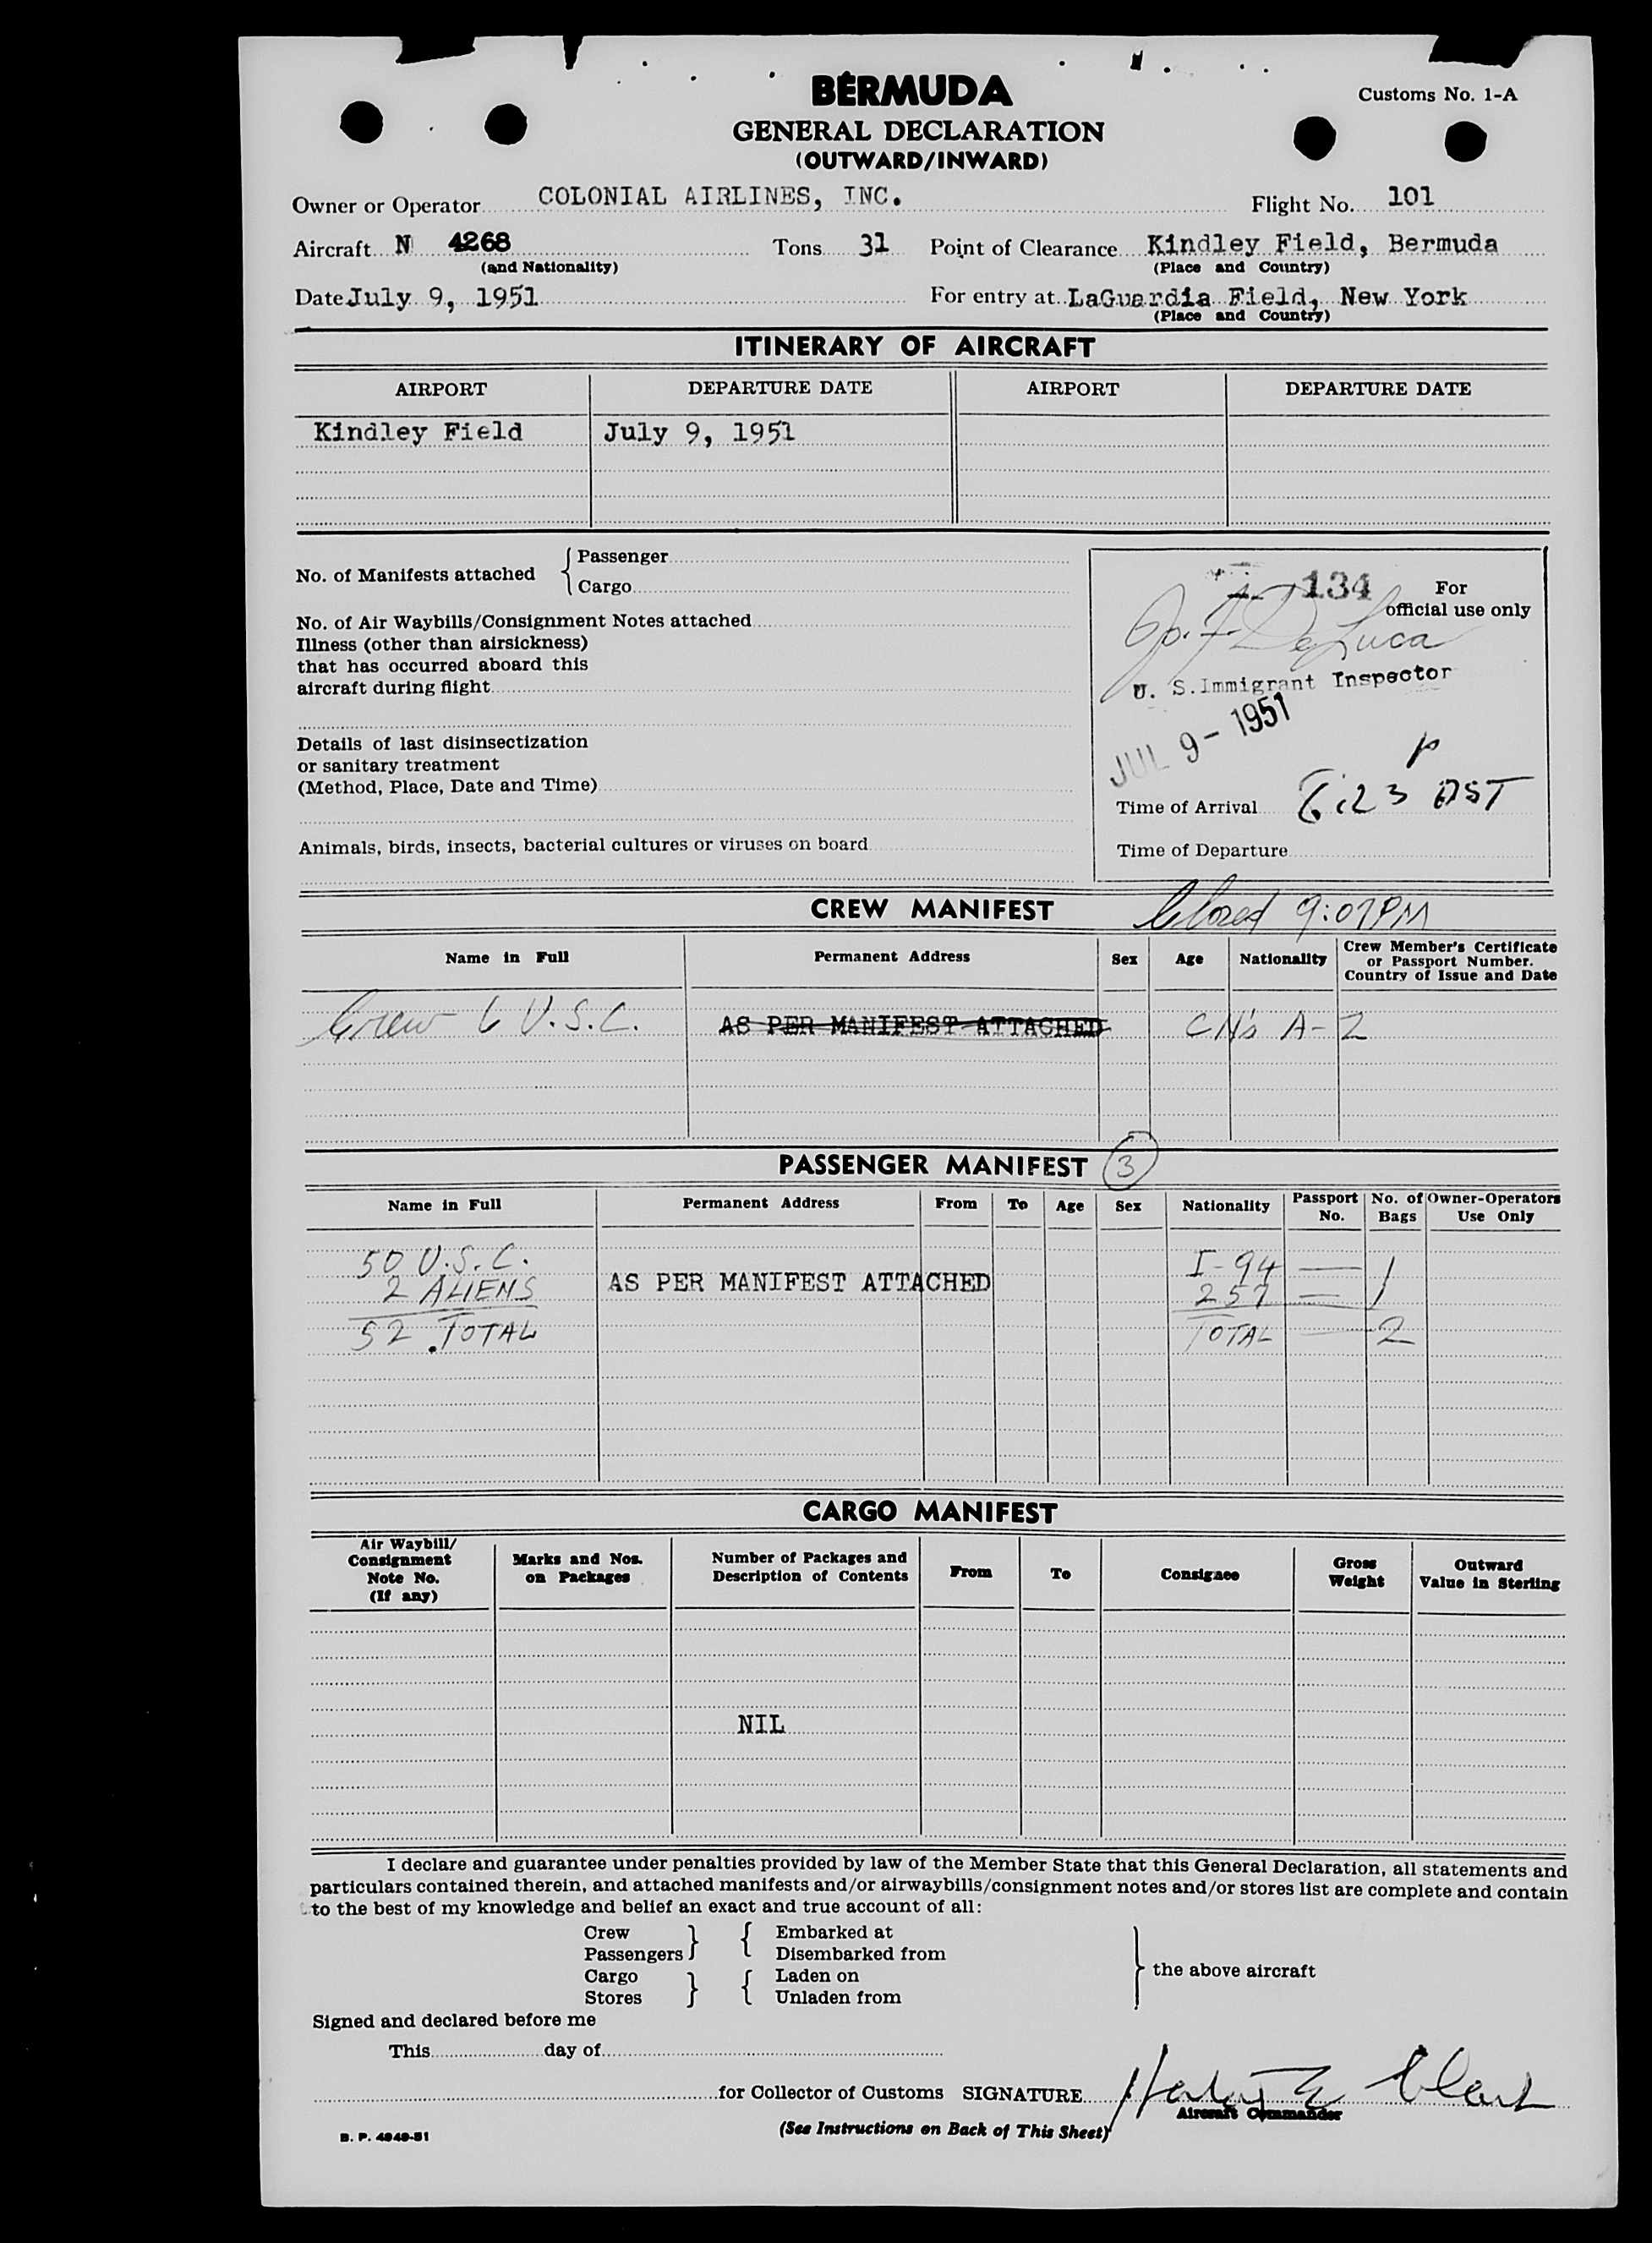 BERMUDA
Customs No. 1-A
GENERAL DECLARATION
(OUTWARD/INWARD)
Owner or Operator COLONIAL AIRLINES, INC. Flight No. 101
Aircraft N 4268 Tons 31 Point of Clearance Kindley Field, Bermuda
(and Nationality) (Place and Country)
Date July 9, 1951 For entry at LaGuardia Field, New York
(Place and Country)
ITINERARY OF AIRCRAFT
AIRPORT DEPARTURE DATE AIRPORT DEPARTURE DATE
Kindley Field July 9, 1951
No. of Manifests attached { Passenger
Cargo
134 For
official use only
No. of Air Waybills/Consignment Notes attached
Illness (other than airsickness)
that has occurred aboard this
aircraft during flight
De Luca
U. S. Immigrant Inspector
JUL 9 - 1951
Details of last disinsectization
or sanitary treatment
(Method, Place, Date and Time)
P
Time of Arrival 6:23 DST
Animals, birds, insects, bacterial cultures or viruses on board
Time of Departure
CREW MANIFEST
Closed 9:07PM
Name in Full Permanent Address Sex Age Nationality Crew Member's Certificate
or Passport Number.
Country of Issue and Date
Crew 6 U.S.C. AS PER MANIFEST ATTACHED CN's A-2
PASSENGER MANIFEST 3
Name in Full Permanent Address From To Age Sex Nationality Passport No. No. of Bags Owner-Operators Use Only
50 U.S.C. I-94 — 1
2 ALIENS AS PER MANIFEST ATTACHED 257 — 1
52 TOTAL TOTAL — 2
CARGO MANIFEST
Air Waybill/
Consignment
Note No.
(If any)
Marks and Nos.
on Packages
Number of Packages and
Description of Contents
From To Consignee
Gross
Weight
Outward
Value in Sterling
NIL
I declare and guarantee under penalties provided by law of the Member State that this General Declaration, all statements and
particulars contained therein, and attached manifests and/or airwaybills/consignment notes and/or stores list are complete and contain
to the best of my knowledge and belief an exact and true account of all:
Crew } { Embarked at
Passengers Disembarked from
Cargo } { Laden on
Stores Unladen from
} the above aircraft
Signed and declared before me
This day of
for Collector of Customs SIGNATURE Clark
Aircraft Commander
(See Instructions on Back of This Sheet)
B. P. 4949-51